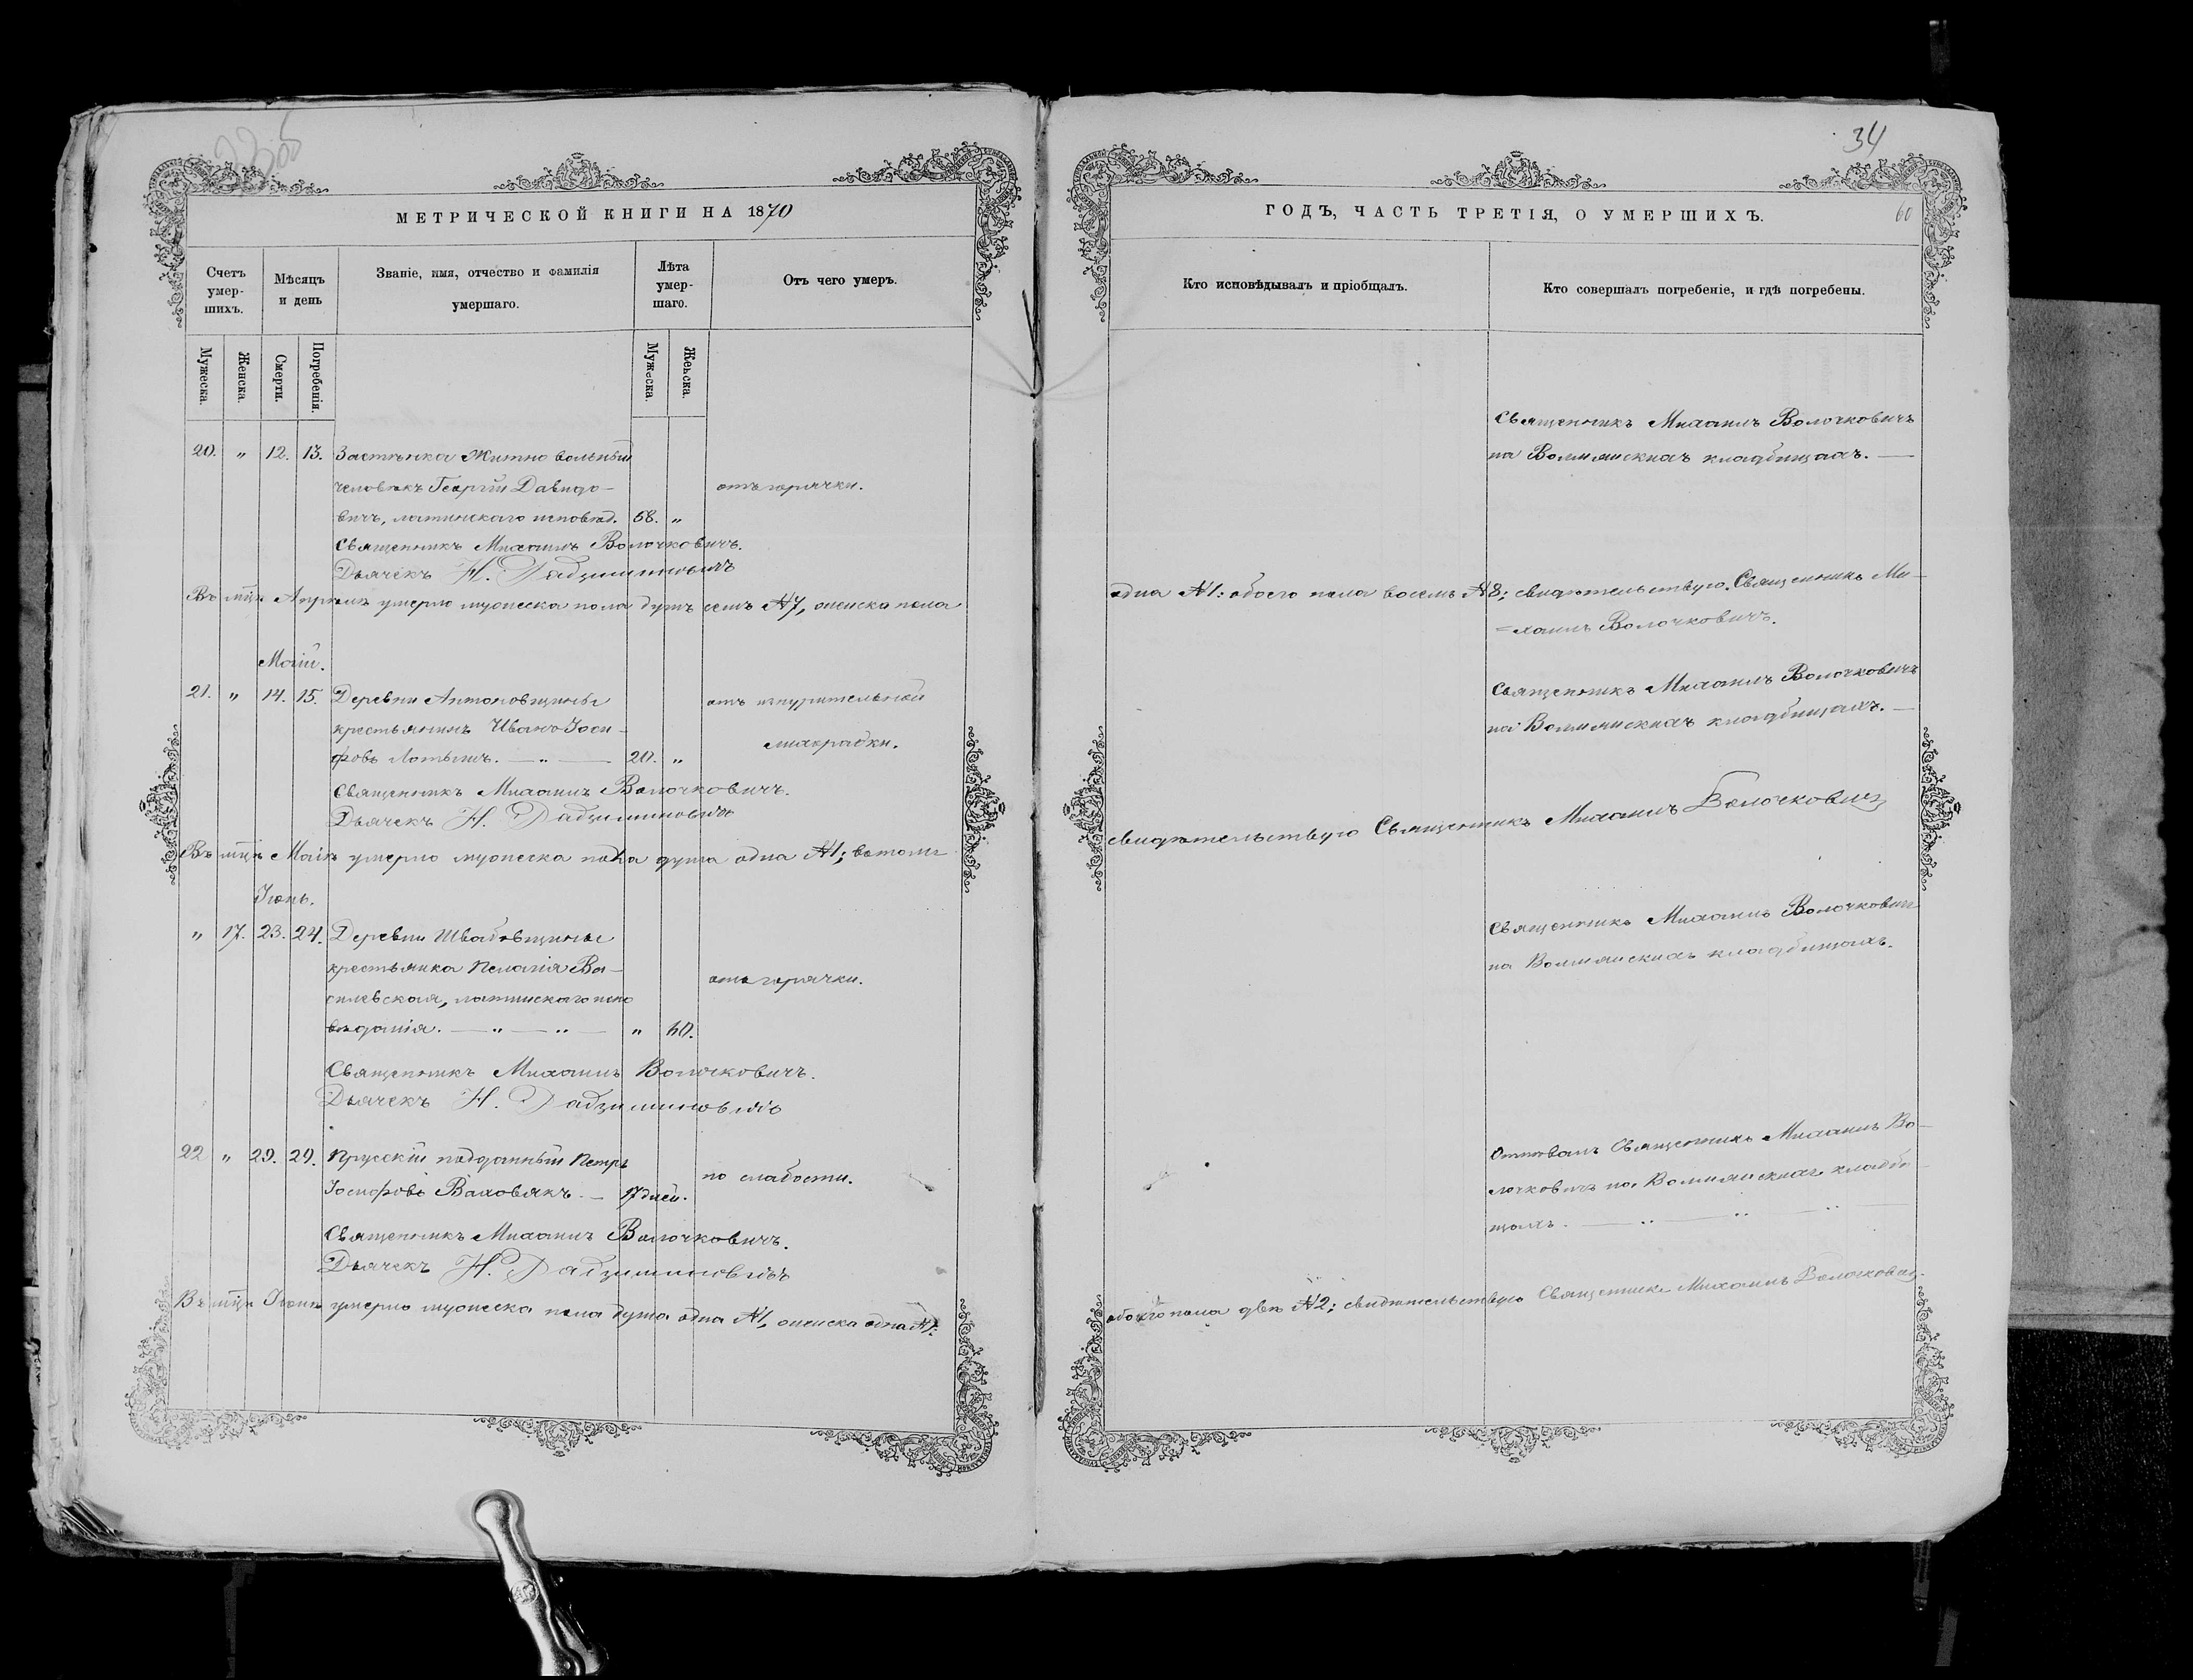 34
МЕТРИЧЕСКОЙ КНИГИ НА 1870
Счетъ умер-
шихъ.
Мѣсяцъ
и день
Званіе, имя, отчество и фамилія
умершаго.
Лѣта
умер-
шаго.
Отъ чего умеръ.
Мужеска.
Женска.
Смерти.
Погребенія.
Мужеска.
Женска.
20. " 12. 13. Застѣнка Житно вольный
человѣкъ Георгій Давидо-
вичъ, латинскаго исповѣд. 58. "
отъ горячки.
Священникъ Михаилъ Волочковичъ.
Дьячекъ Н.
Въ мцѣ Апрѣлѣ умерло мужеска пола душъ семь №7, женска пола
Маій.
21. " 14. 15. Деревни Антоновщины
крестьянинъ Иванъ Іоси-
фовъ Лотышъ. 20. "
отъ изнурительной
лихорадки.
Священникъ Михаилъ Волочковичъ.
Дьячекъ Н.
Въ мцѣ Маіѣ умерло мужеска пола душа одна №1; въ томъ
Іюнь.
" 17. 23. 24. Деревни Швабовщины
крестьянка Пелагія Ва-
силевская, латинскаго испо
вѣданія. " 60.
отъ горячки.
Священникъ Михаилъ Волочковичъ.
Дьячекъ Н.
22 " 29. 29. Прусскій подданный Петръ
Іосифовъ Ваховякъ. 17 дней.
по слабости.
Священникъ Михаилъ Волочковичъ.
Дьячекъ Н.
Въ мцѣ Іюнѣ умерло мужеска пола душа одна №1, женска одна №1:
ГОДЪ, ЧАСТЬ ТРЕТІЯ, О УМЕРШИХЪ.
60
Кто исповѣдывалъ и пріобщалъ.
Кто совершалъ погребеніе, и гдѣ погребены.
Священникъ Михаилъ Волочковичъ
на Волмянскихъ кладбищахъ.
одна №1: обоего пола восемь №8; свидѣтельствую. Священникъ Ми-
=хаилъ Волочковичъ.
Священникъ Михаилъ Волочковичъ
на Волмянскихъ кладбищахъ.
свидѣтельствую Священникъ Михаилъ Волочковичъ
Священникъ Михаилъ Волочковичъ
на Волмянскихъ кладбищахъ.
Отпѣвалъ Священникъ Михаилъ Во-
лочковичъ на Волмянскихъ кладби-
щахъ.
обоего пола двѣ №2; свидѣтельствую Священникъ Михаилъ Волочковичъ.